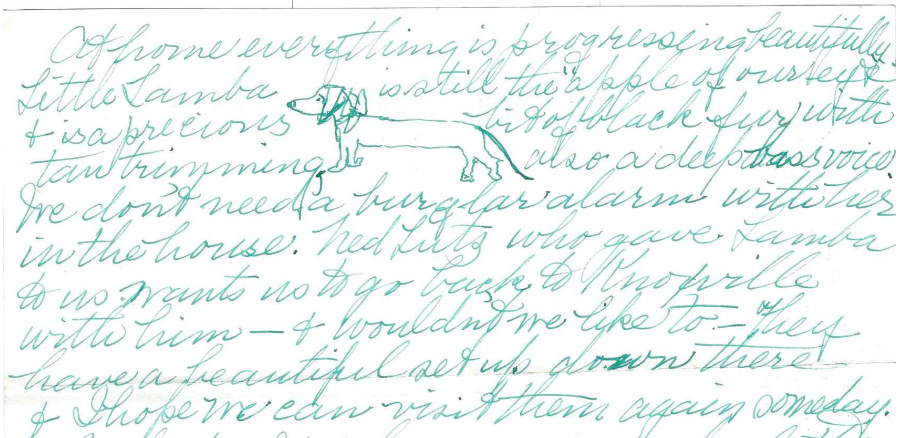 At home everything is progressing beautifully.
Little Lamba is still the "apple of our eye"
& is a precious bit of black fur with
tan trimming, also a deep bass voice.
We don't need a burglar alarm with her
in the house. Ned Lutz who gave Lamba
to us wants us to go back to Knoxville
with him — & wouldn't we like to — They
have a beautiful set up down there
& I hope we can visit them again someday.